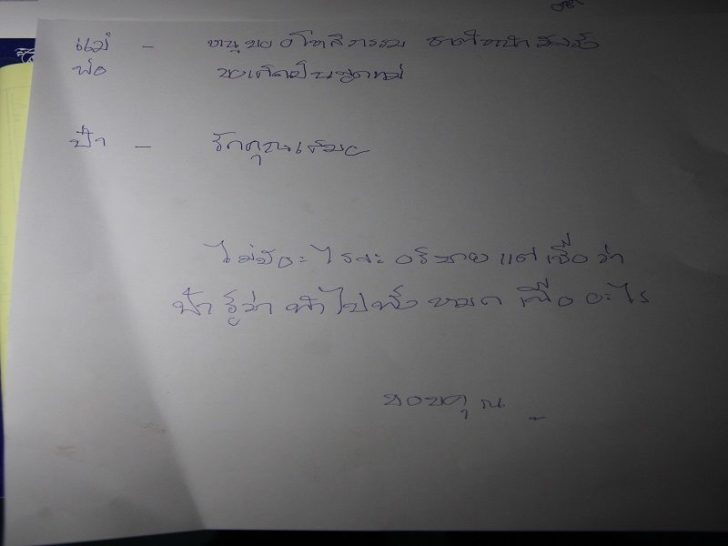 แม่ - หนูขออโหสิกรรม ชาติหน้า
พ่อ ขอเกิดเป็นลูกแม่
ป้า - รักคุณเสมอ
ไม่มีอะไรจะอธิบาย แต่เชื่อว่า
ป้ารู้ว่า ทำไปทั้งหมด เพื่ออะไร
ขอบคุณ